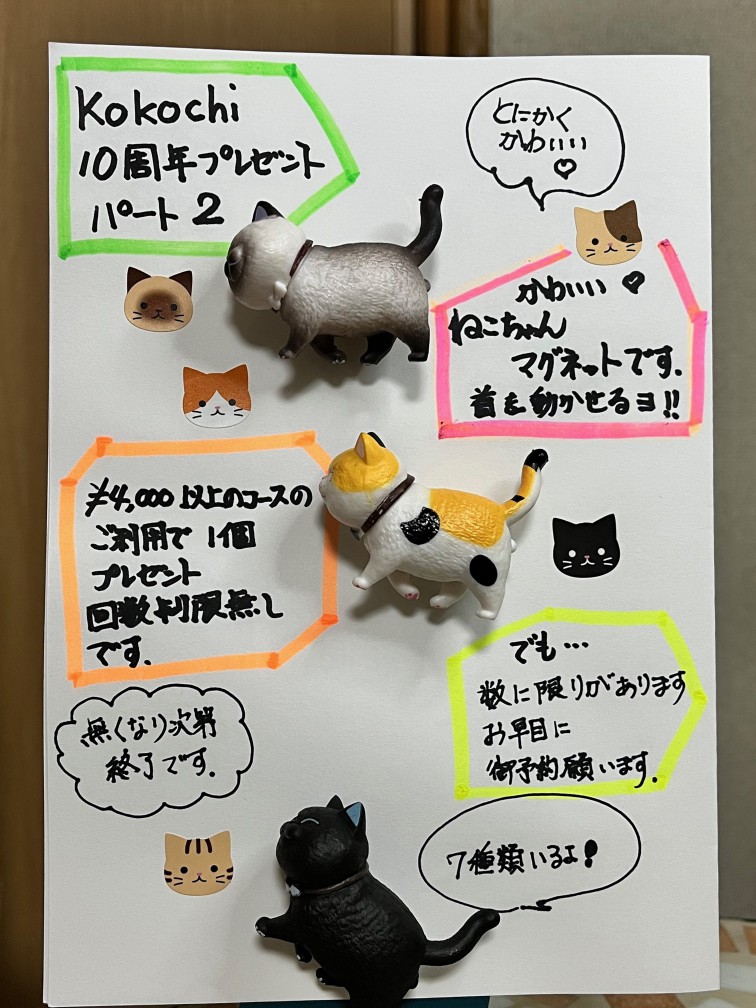 Kokochi
10周年プレゼント
パート2
とにかく
かわいい
♡
かわいい ♡
ねこちゃん
マグネットです.
首を動かせるヨ!!
¥4,000以上のコースの
ご利用で 1個
プレゼント
回数制限無し
です.
でも…
数に限りがあります
お早目に
御予約願います.
無くなり次第
終了です.
7種類いるよ!